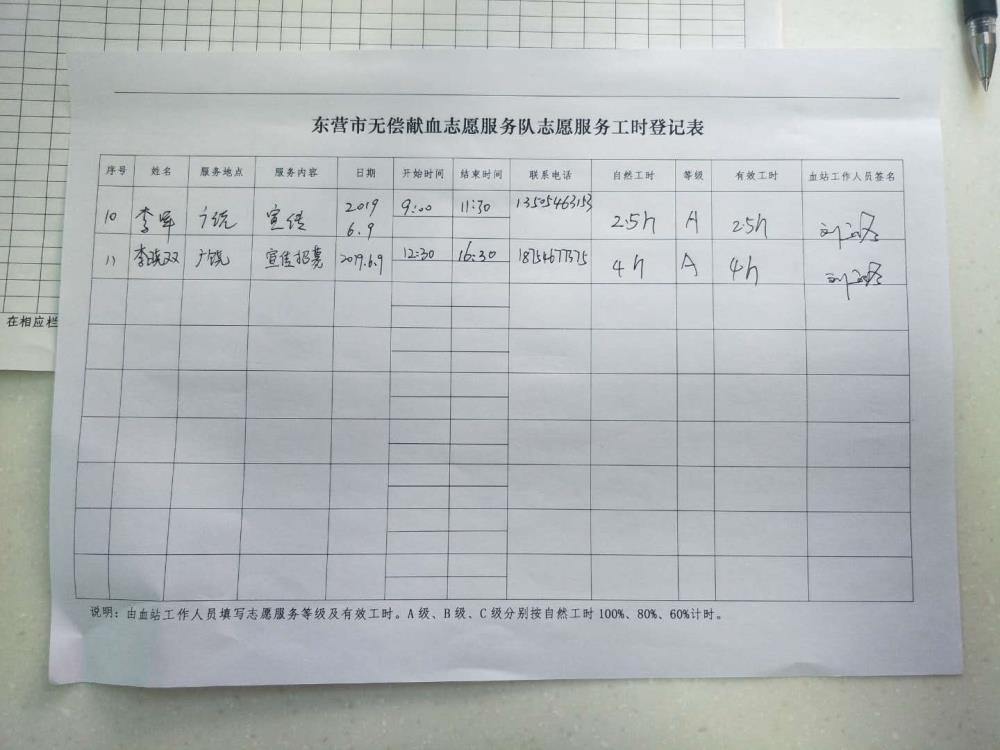 东营市无偿献血志愿服务队志愿服务工时登记表
序号 姓名 服务地点 服务内容 日期 开始时间 结束时间 联系电话 自然工时 等级 有效工时 血站工作人员签名
10 李军 广饶 宣传 2019 6.9 9:00 11:30 13505463153 2.5h A 2.5h
11 李晓双 广饶 宣传招募 2019.6.9 12:30 16:30 18754677375 4h A 4h
在相应栏
说明：由血站工作人员填写志愿服务等级及有效工时。A级、B级、C级分别按自然工时100%、80%、60%计时。